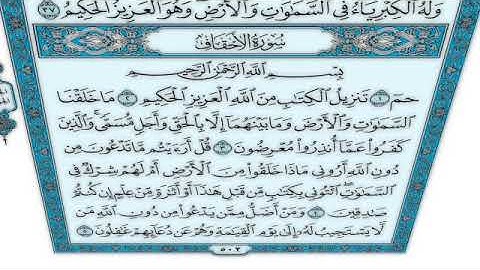 وَلَهُ ٱلْكِبْرِيَآءُ فِى ٱلسَّمَٰوَٰتِ وَٱلْأَرْضِ وَهُوَ ٱلْعَزِيزُ ٱلْحَكِيمُ ٣٧
سُورَةُ الأَحْقَافِ
بِسْمِ ٱللَّهِ ٱلرَّحْمَٰنِ ٱلرَّحِيمِ
حمٓ ١ تَنزِيلُ ٱلْكِتَٰبِ مِنَ ٱللَّهِ ٱلْعَزِيزِ ٱلْحَكِيمِ ٢ مَا خَلَقْنَا
ٱلسَّمَٰوَٰتِ وَٱلْأَرْضَ وَمَا بَيْنَهُمَآ إِلَّا بِٱلْحَقِّ وَأَجَلٍ مُّسَمًّى وَٱلَّذِينَ
كَفَرُوا۟ عَمَّآ أُنذِرُوا۟ مُعْرِضُونَ ٣ قُلْ أَرَءَيْتُم مَّا تَدْعُونَ مِن
دُونِ ٱللَّهِ أَرُونِى مَاذَا خَلَقُوا۟ مِنَ ٱلْأَرْضِ أَمْ لَهُمْ شِرْكٌ فِى
ٱلسَّمَٰوَٰتِ ٱئْتُونِى بِكِتَٰبٍ مِّن قَبْلِ هَٰذَآ أَوْ أَثَٰرَةٍ مِّنْ عِلْمٍ إِن كُنتُمْ
صَٰدِقِينَ ٤ وَمَنْ أَضَلُّ مِمَّن يَدْعُوا۟ مِن دُونِ ٱللَّهِ مَن
لَّا يَسْتَجِيبُ لَهُۥٓ إِلَىٰ يَوْمِ ٱلْقِيَٰمَةِ وَهُمْ عَن دُعَآئِهِمْ غَٰفِلُونَ ٥
٥٠٢